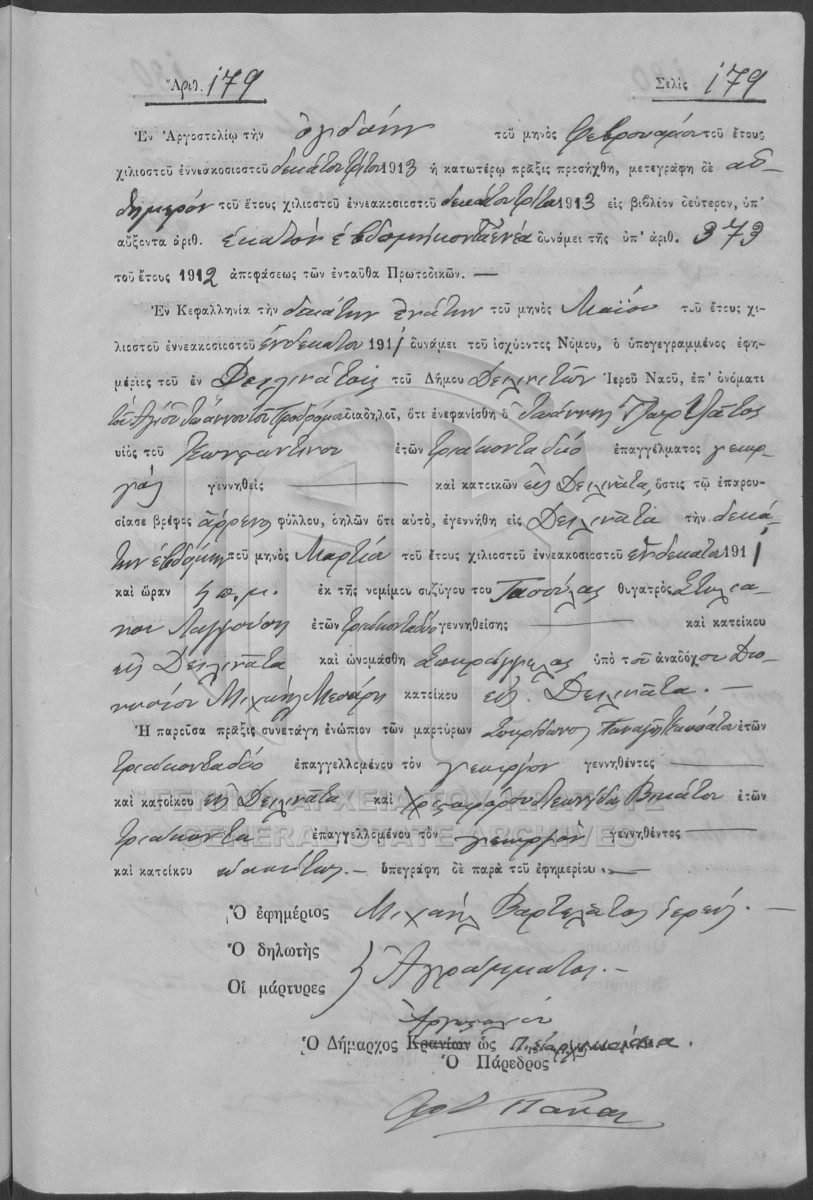 Ἀριθ. 179
Σελὶς 179
Ἐν Ἀργοστολίῳ τὴν ὀγδόην τοῦ μηνὸς Φεβρουαρίου τοῦ ἔτους
χιλιοστοῦ ἐννεακοσιοστοῦ δεκάτου τρίτου 1913 ἡ κατωτέρω πρᾶξις προσήχθη, μετεγράφη δὲ αὐ-
θημερόν τοῦ ἔτους χιλιοστοῦ ἐννεακοσιοστοῦ δεκάτου τρίτου 1913 εἰς βιβλίον δεύτερον, ὑπ'
αὔξοντα ἀριθ. ἑκατὸν ἑβδομήκοντα ἐννέα δυνάμει τῆς ὑπ' ἀριθ. 373
τοῦ ἔτους 1912 ἀποφάσεως τῶν ἐνταῦθα Πρωτοδικῶν. —
Ἐν Κεφαλληνίᾳ τὴν δεκάτην ἐνάτην τοῦ μηνὸς Μαΐου τοῦ ἔτους χι-
λιοστοῦ ἐννεακοσιοστοῦ ἑνδεκάτου 1911 δυνάμει τοῦ ἰσχύοντος Νόμου, ὁ ὑπογεγραμμένος ἐφη-
μέριος τοῦ ἐν Δειλινάτοις τοῦ Δήμου Δειλινιτῶν Ἱεροῦ Ναοῦ, ἐπ' ὀνόματι
τοῦ Ἁγίου Ἰωάννου τοῦ Προδρόμου διαδηλοῖ, ὅτι ἐνεφανίσθη ὁ Ἰωάννης
υἱὸς τοῦ Κωνσταντίνου ἐτῶν τριάκοντα δύο ἐπαγγέλματος γεωρ-
γὸς γεννηθεὶς — καὶ κατοικῶν εἰς Δειλινᾶτα, ὅστις τῷ ἐπαρου-
σίασε βρέφος ἄρρενος φύλλου, δηλῶν ὅτι αὐτό, ἐγεννήθη εἰς Δειλινᾶτα τὴν δεκά-
την ἑβδόμην τοῦ μηνὸς Μαρτίου τοῦ ἔτους χιλιοστοῦ ἐννεακοσιοστοῦ ἑνδεκάτου 1911
καὶ ὥραν π.μ. ἐκ τῆς νομίμου συζύγου του Τασούλας θυγατρὸς Στυλια-
νοῦ ἐτῶν τριάκοντα δύο γεννηθείσης — καὶ κατοίκου
εἰς Δειλινᾶτα καὶ ὠνομάσθη ὑπὸ τοῦ ἀναδόχου Διο-
νυσίου Μιχαὴλ Μεσάρη κατοίκου εἰς Δειλινᾶτα. —
Ἡ παροῦσα πρᾶξις συνετάγη ἐνώπιον τῶν μαρτύρων Σπυρίδωνος Παναγῆ ἐτῶν
τριάκοντα δύο ἐπαγγελλομένου τὸν γεωργὸν γεννηθέντος —
καὶ κατοίκου εἰς Δειλινᾶτα καὶ Χριστοφόρου Λεωνίδα ἐτῶν
τριάκοντα ἐπαγγελλομένου τὸν γεωργὸν γεννηθέντος —
καὶ κατοίκου ὡσαύτως. — ὑπεγράφη δὲ παρὰ τοῦ ἐφημερίου. —
ΓΕΝΙΚΑ ΑΡΧΕΙΑ ΤΟΥ ΚΡΑΤΟΥΣ
GENERAL STATE ARCHIVES
Ὁ ἐφημέριος Μιχαὴλ Βαρτελᾶτος ἱερεύς. —
Ὁ δηλωτὴς
Οἱ μάρτυρες } Ἀγράμματοι. —
Ἀργοστολίου
Ὁ Δήμαρχος Κρανίων ὡς
Ὁ Πάρεδρος